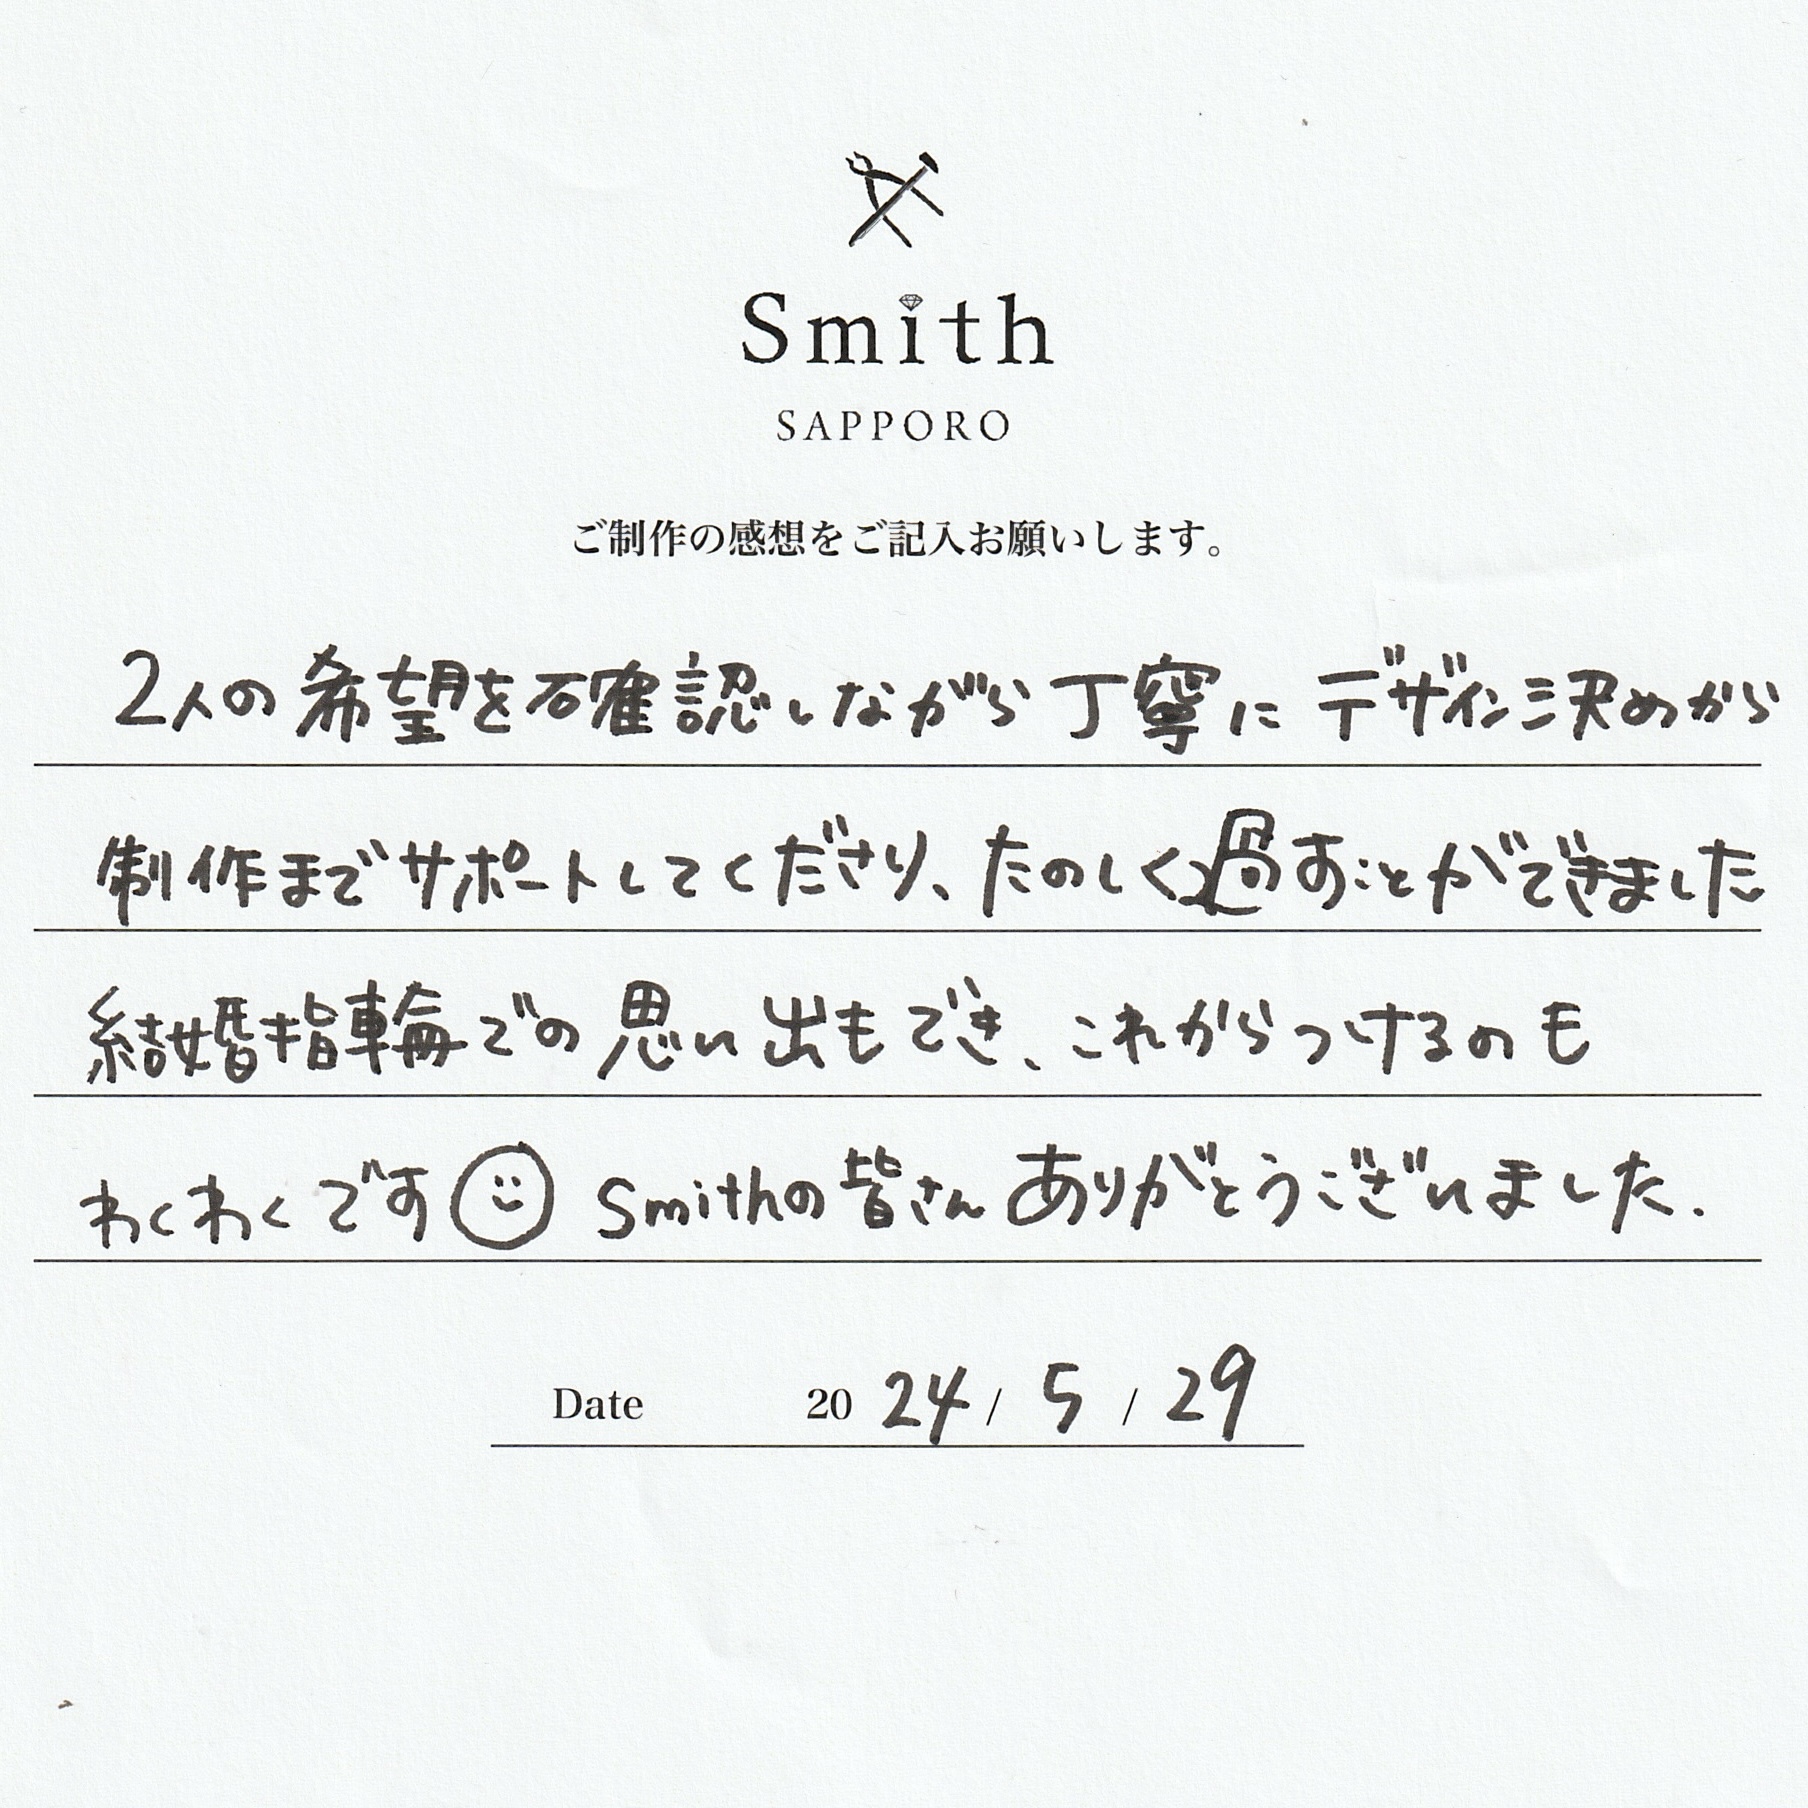 Smith
SAPPORO
ご制作の感想をご記入お願いします。
2人の希望を確認しながら丁寧にデザイン決めから
制作までサポートしてくださり、たのしく過すことができました
結婚指輪での思い出もでき、これからつけるのも
わくわくです☺ Smithの皆さんありがとうございました.
Date 2024/5/29